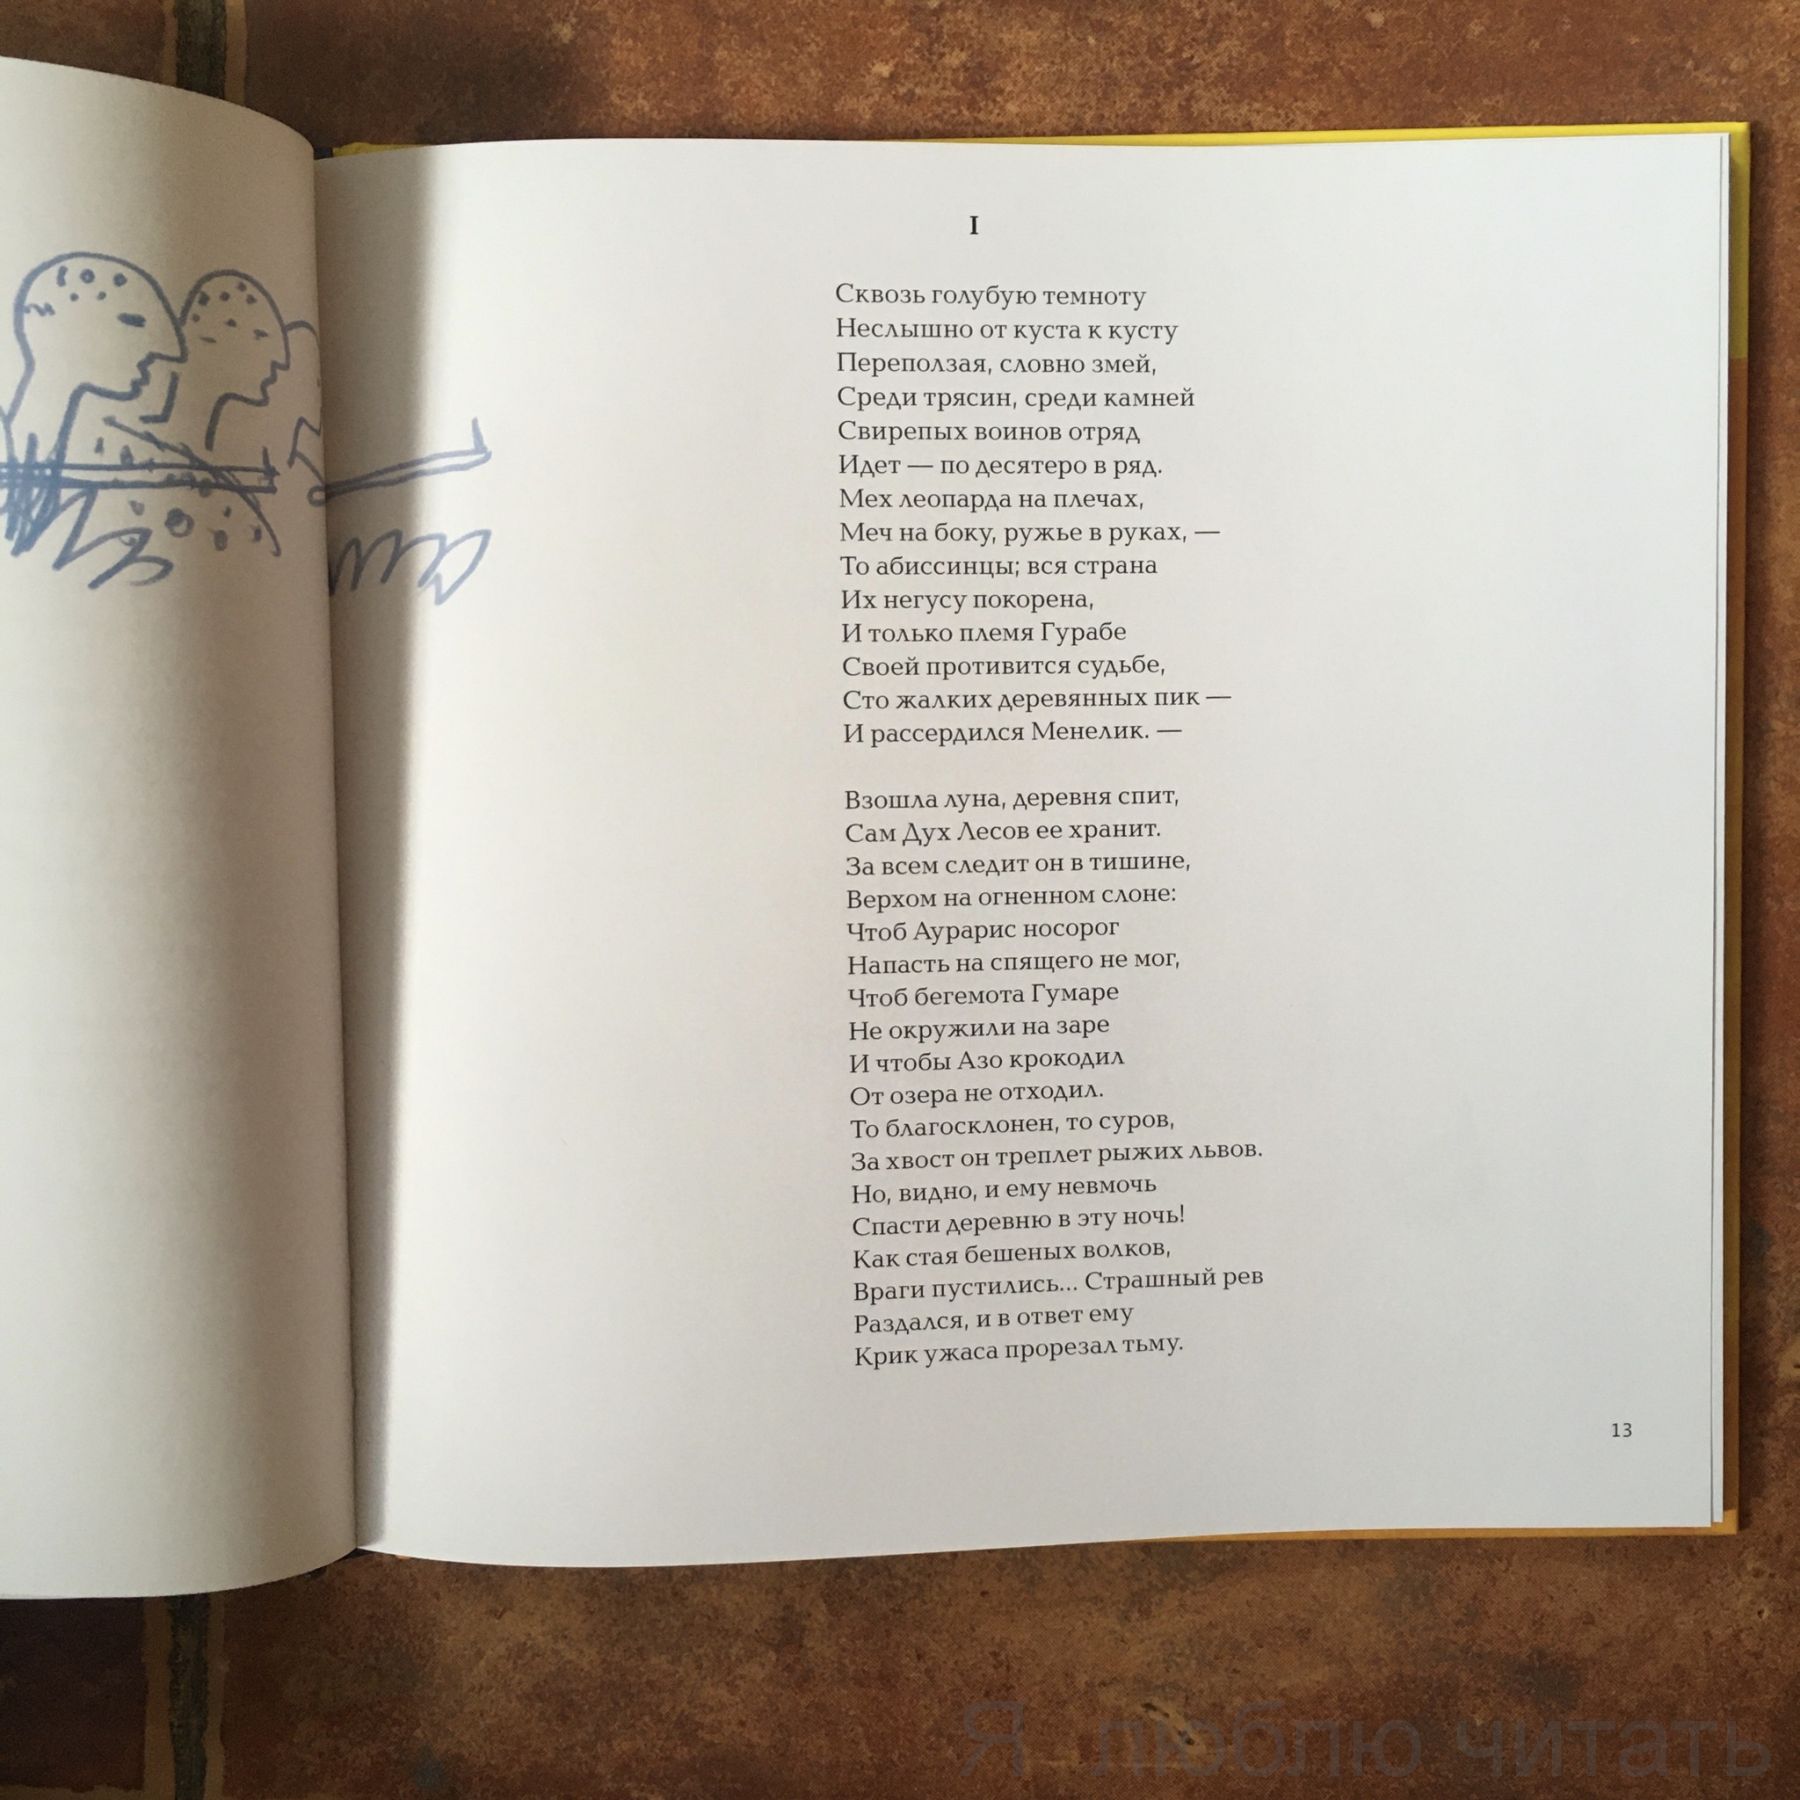 I
Сквозь голубую темноту
Неслышно от куста к кусту
Переползая, словно змей,
Среди трясин, среди камней
Свирепых воинов отряд
Идет — по десятеро в ряд.
Мех леопарда на плечах,
Меч на боку, ружье в руках, —
То абиссинцы; вся страна
Их негусу покорена,
И только племя Гурабе
Своей противится судьбе,
Сто жалких деревянных пик —
И рассердился Менелик. —
Взошла луна, деревня спит,
Сам Дух Лесов ее хранит.
За всем следит он в тишине,
Верхом на огненном слоне:
Чтоб Аурарис носорог
Напасть на спящего не мог,
Чтоб бегемота Гумаре
Не окружили на заре
И чтобы Азо крокодил
От озера не отходил.
То благосклонен, то суров,
За хвост он треплет рыжих львов.
Но, видно, и ему невмочь
Спасти деревню в эту ночь!
Как стая бешеных волков,
Враги пустились... Страшный рев
Раздался, и в ответ ему
Крик ужаса прорезал тьму.
13
Я люблю читать